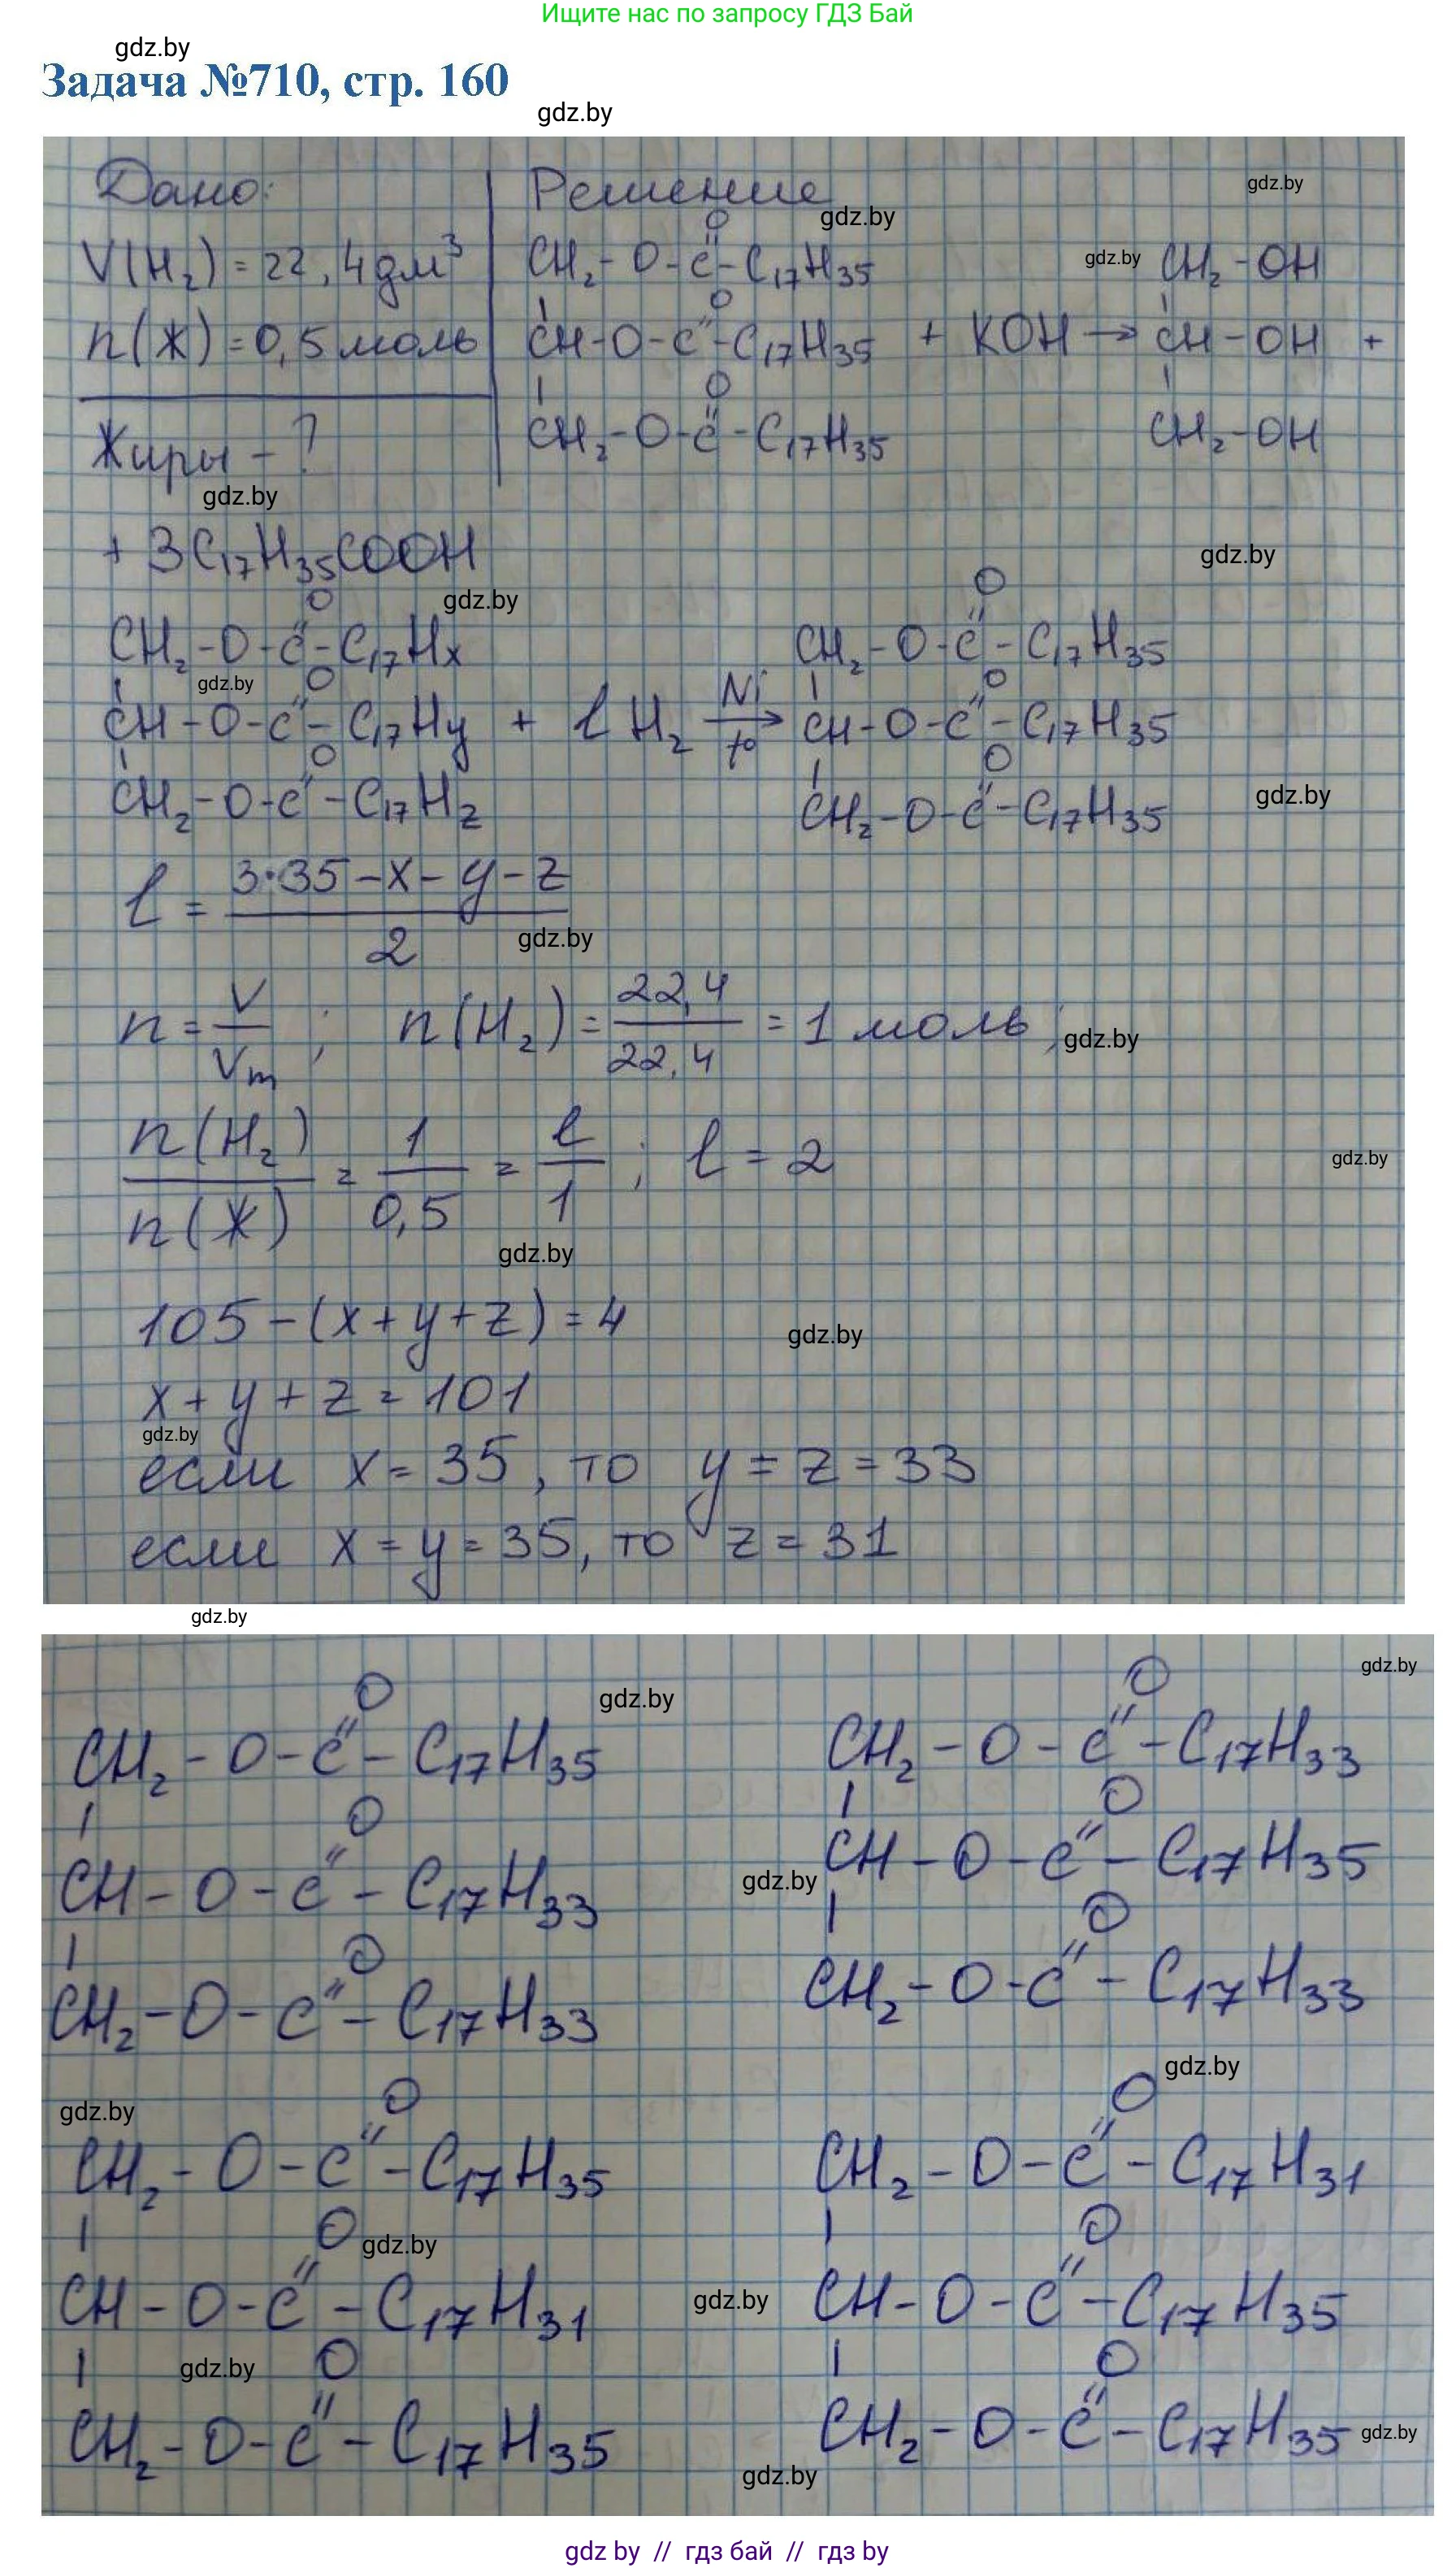 Ищите нас по запросу ГДЗ Бай
gdz.by
Задача №710, стр. 160
gdz.by
Дано:
V(H₂) = 22,4 дм³
n(Ж) = 0,5 моль
Жиры - ?
gdz.by
Решение
gdz.by
gdz.by
O
CH₂-O-C-C₁₇H₃₅
O
CH-O-C-C₁₇H₃₅ + KOH →
O
CH₂-O-C-C₁₇H₃₅
gdz.by
CH₂-OH
CH-OH +
CH₂-OH
+ 3C₁₇H₃₅COOH
gdz.by
gdz.by
O
CH₂-O-C-C₁₇Hx
gdz.by
O
CH-O-C-C₁₇Hy + l H₂ Ni t° →
O
CH₂-O-C-C₁₇Hz
O
CH₂-O-C-C₁₇H₃₅
O
CH-O-C-C₁₇H₃₅
O
CH₂-O-C-C₁₇H₃₅
gdz.by
l = 3·35-x-y-z / 2
gdz.by
n = V / Vm ; n(H₂) = 22,4 / 22,4 = 1 моль;
gdz.by
n(H₂) / n(Ж) = 1 / 0,5 = l / 1 ; l = 2
gdz.by
gdz.by
105-(x+y+z) = 4
gdz.by
x + y + z = 101
gdz.by
если x = 35, то y = z = 33
если x = y = 35, то z = 31
gdz.by
gdz.by
gdz.by
O
CH₂-O-C-C₁₇H₃₅
O
CH-O-C-C₁₇H₃₃
O
CH₂-O-C-C₁₇H₃₃
O
CH₂-O-C-C₁₇H₃₃
O
gdz.by
CH-O-C-C₁₇H₃₅
O
CH₂-O-C-C₁₇H₃₃
gdz.by
gdz.by
O
CH₂-O-C-C₁₇H₃₅
O
gdz.by
CH-O-C-C₁₇H₃₁
gdz.by
O
CH₂-O-C-C₁₇H₃₅
O
CH₂-O-C-C₁₇H₃₁
O
gdz.by
CH-O-C-C₁₇H₃₅
O
CH₂-O-C-C₁₇H₃₅
gdz.by
gdz.by
gdz by // гдз бай // гдз by